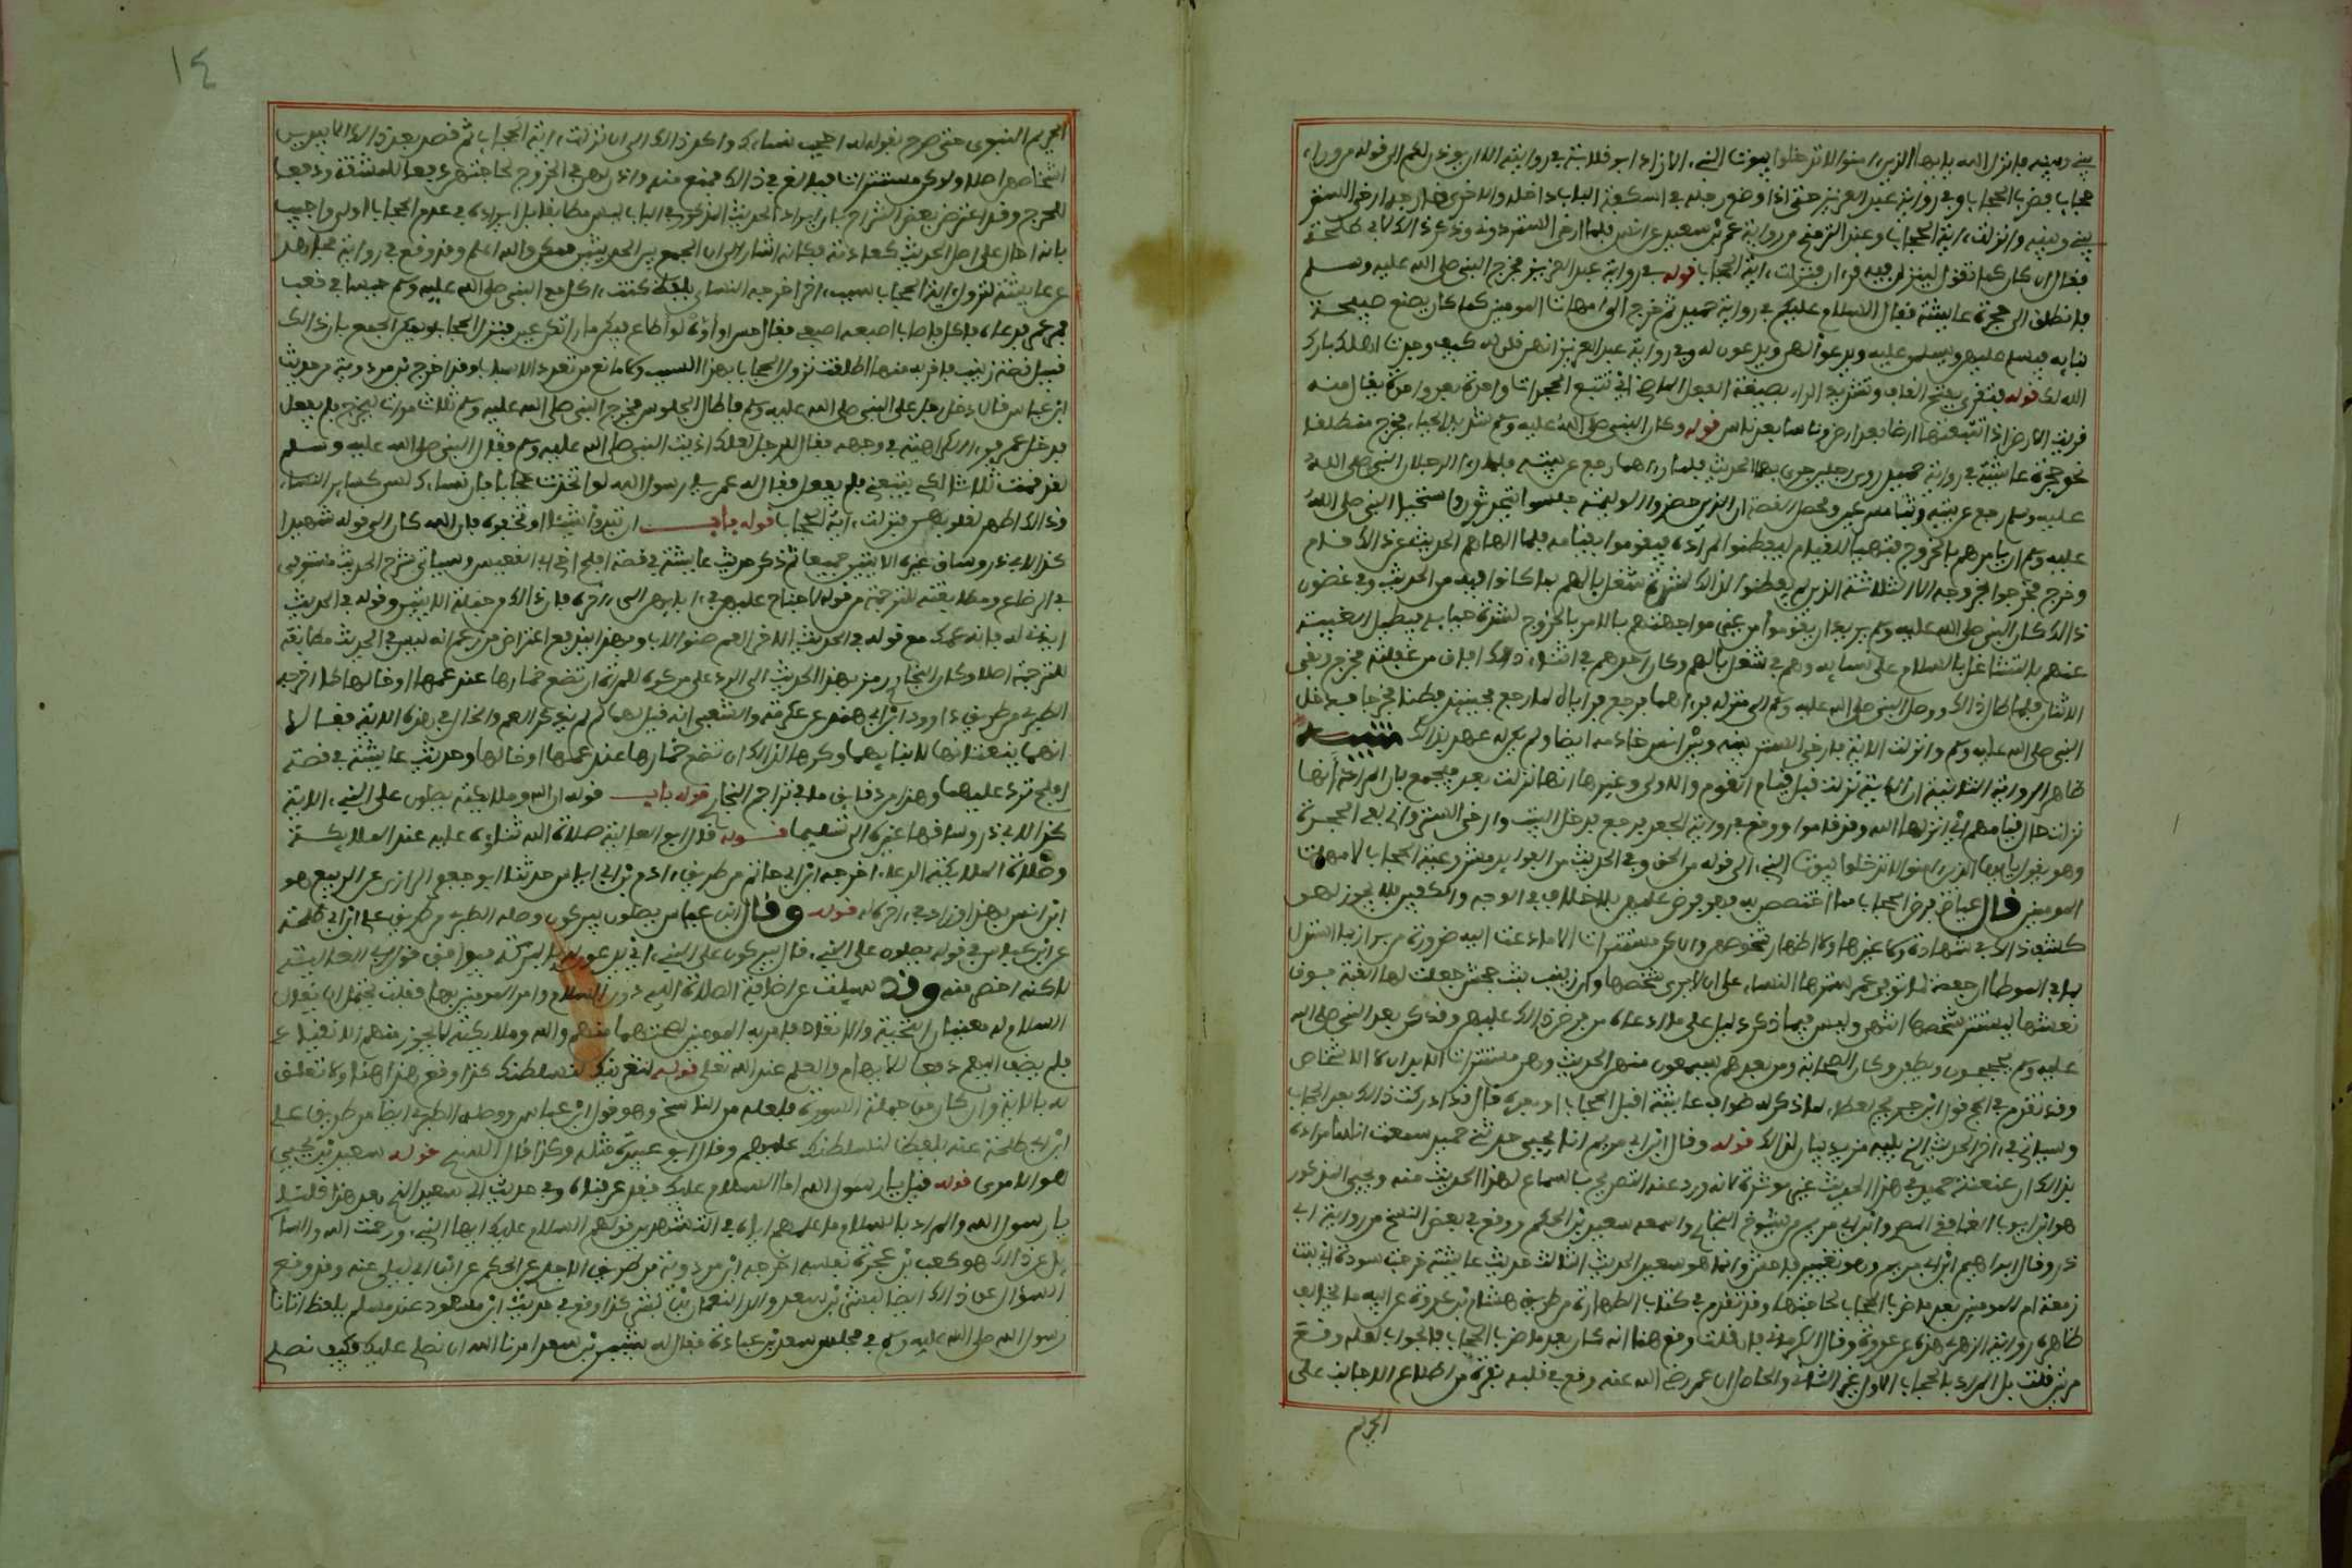 بيني وبينه فانزل الله يايها الذين ءامنوا لا تدخلوا بيوت النبيء الاية زاد ابو قلابة في رواية الا ان يوذن لكم الى قوله من وراء
حجاب فضرب الحجاب وفي رواية عبد العزيز حتى اذا وضع رجله في اسكفة الباب داخله والاخرى خارجه ارخى الستر
بيني وبينه وانزلت ءاية الحجاب وعند الترمذي من رواية عمرو بن سعيد عن انس فلما ارخى الستر دوني ذكرت ذالك لابي طلحة
فقال ان كان كما تقول لينزلن فيه قرءان فنزلت ءاية الحجاب قوله في رواية عبد العزيز فخرج النبي صلى الله عليه وسلم
فانطلق الى حجرة عايشة فقال السلام عليكم في رواية حميد ثم خرج الى امهات المومنين كما كان يصنع صبيحة
بنايه فيسلم عليهن ويسلمن عليه ويدعو لهن ويدعون له وفي رواية عبد العزيز انهن قلن له كيف وجدت اهلك بارك
الله لك قوله فتقرى بفتح القاف وتشديد الراء بصيغة الفعل الماضي اي تتبع الحجرات واحدة بعد واحدة يقال منه
قريت الارض اذا تتبعتها ارضا بعد ارض وناسا بعد ناس قوله وكان النبي صلى الله عليه وسلم شديد الحياء فخرج منطلقا
نحو حجرة عايشة في رواية حميد راى رجلين جرى بهما الحديث فلما رءاهما رجع عن بيته فلما راى الرجلان النبي صلى الله
عليه وسلم رجع عن بيته وثبا مسرعين ومحصل القصة ان الذين حضروا الوليمة جلسوا يتحدثون واستحيا النبي صلى الله
عليه وسلم ان يامرهم بالخروج فتهيا للقيام ليفطنوا لمراده فيقوموا بقيامه فلما الهاهم الحديث عن ذالك قام
وخرج فخرجوا بخروجه الا الثلاثة الذين لم يفطنوا لذالك لشدة شغل بالهم بما كانوا فيه من الحديث وفي غضون
ذالك كان النبي صلى الله عليه وسلم يريد ان يقوموا من غير مواجهتهم بالامر بالخروج لشدة حيايه فيطيل الغيبة
عنهم بالتشاغل بالسلام على نسايه وهم في شغل بالهم وكان احدهم في اثناء ذالك افاق من غفلته فخرج وبقي
الاثنان فلما طال ذالك ووصل النبي صلى الله عليه وسلم الى منزله فرءاهما فرجع فراياه لما رجع فحينئذ فطنا فخرجا فدخل
النبي صلى الله عليه وسلم وانزلت الاية فارخى الستر بينه وبين انس خادمه ايضا ولم يكن له عهد بذالك تنبيه
ظاهر الرواية الثانية ان الاية نزلت قبل قيام القوم والاولى وغيرها انها نزلت بعد فيجمع بان المراد انها
نزلت حال قيامهم اي انزلها الله وقد قاموا ووقع في رواية الجعد فرجع فدخل البيت وارخى الستر واني لفي الحجرة
وهو يقول يايها الذين ءامنوا لا تدخلوا بيوت النبيء الى قوله من الحق وفي الحديث من الفوايد مشروعية الحجاب لامهات
المومنين قال عياض فرض الحجاب مما اختصصن به فهو فرض عليهن بلا خلاف في الوجه والكفين فلا يجوز لهن
كشف ذالك في شهادة ولا غيرها ولا اظهار شخوصهن وان كن مستترات الا ما دعت اليه ضرورة من براز ثم استدل
بما في الموطا ان حفصة لما توفي عمر سترها النساء على ان لا يرى شخصها وان زينب بنت جحش جعلت لها القبة فوق
نعشها ليستتر شخصها انتهى وليس فيما ذكر دليل على ما ادعاه من فرض ذالك عليهن وقد كن بعد النبي صلى الله
عليه وسلم يحججن ويطفن وكان الصحابة ومن بعدهم يسمعون منهن الحديث وهن مستترات الابدان لا الاشخاص
وقد تقدم في الحج قول ابن جريج لعطاء لما ذكر له طواف عايشة اقبل الحجاب او بعده قال قد ادركت ذالك بعد الحجاب
وسياتي في ءاخر الحديث الذي يليه مزيد بيان لذالك قوله وقال ابن ابي مريم انا يحيى حدثني حميد سمعت انسا مراده
بذالك ان عنعنة حميد في هذا الحديث غير موثرة لانه ورد عنه التصريح بالسماع لهذا الحديث منه ويحيى المذكور
هو ابن ايوب الغافقي المصري وابن ابي مريم من شيوخ البخاري واسمه سعيد بن الحكم ووقع في بعض النسخ من رواية ابي
ذر وقال ابراهيم ابن ابي مريم وهو تغيير فاحش وانما هو سعيد الحديث الثالث حديث عايشة خرجت سودة اي بنت
زمعة ام المومنين بعد ما ضرب الحجاب لحاجتها وقد تقدم في كتاب الطهارة من طريق هشام بن عروة عن ابيه ما يخالف
ظاهره رواية الزهري هذه عن عروة وقال الكرماني فان قلت وقع هنا انه كان بعد ما ضرب الحجاب فالجواب لعله وقع
مرتين قلت بل المراد بالحجاب الاول غير الثاني والحاصل ان عمر رضي الله عنه وقع في قلبه نفرة من اطلاع الاجانب على
الحريم
١٤
الحريم النبوي حتى صرح بقوله له احجب نساءك واكد ذالك الى ان نزلت ءاية الحجاب ثم قصد بعد ذالك الا يبدين
اشخاصهن اصلا ولو كن مستترات فبالغ في ذالك فمنع منه واذن لهن في الخروج لحاجتهن دفعا للمشقة ودفعا
للحرج وقد اعترض بعض الشراح بان ايراد الحديث المذكور في الباب ليس مطابقا بل ايراده في عدم الحجاب اولى واجيب
بانه احال على اصل الحديث كعادته وكانه اشار الى ان الجمع بين الحديثين ممكن والله اعلم وقد وقع في رواية مجاهد
عن عايشة لنزول ءاية الحجاب سبب ءاخر اخرجه النساي بلفظ كنت ءاكل مع النبي صلى الله عليه وسلم حيسا في قعب
فمر عمر فدعاه فاكل فاصاب اصبعه اصبعي فقال حس او اوه لو اطاع فيكن ما راتكن عين فنزل الحجاب ويمكن الجمع بان ذالك
قبيل قصة زينب فلقربه منها اطلقت نزول الحجاب بهذا السبب ولا مانع من تعدد الاسباب وقد اخرج بن مردوية من حديث
ابن عباس قال دخل رجل على النبي صلى الله عليه وسلم فاطال الجلوس فخرج النبي صلى الله عليه وسلم ثلاث مرات ليخرج فلم يفعل
فدخل عمر فرءا الكراهية في وجهه فقال للرجل لعلك اذيت النبي صلى الله عليه وسلم فقال النبي صلى الله عليه وسلم
لقد قمت ثلاثا لكي يتبعني فلم يفعل فقال له عمر يا رسول الله لو اتخذت حجابا فان نساءك لسن كساير النساء
وذالك اطهر لقلوبهن فنزلت ءاية الحجاب قوله باب ان تبدوا شيئا او تخفوه فان الله كان الى قوله شهيدا
كذا لابي ذر وساق غيره الايتين جميعا ثم ذكر حديث عايشة في قصة افلح اخي ابي القعيس وسياتي شرح الحديث مستوفى
في الرضاع ومطابقته للترجمة من قوله لا جناح عليهن في ءابايهن الى ءاخره فان ذالك من جملة الايتين وقوله في الحديث
ايذني له فانه عمك مع قوله في الحديث الاخر العم صنو الاب وبهذا يندفع اعتراض من زعم انه ليس في الحديث مطابقة
للترجمة اصلا وكان البخاري رمز بهذا الحديث الى الرد على من كره للمراة ان تضع خمارها عند عمها او خالها كما اخرجه
الطبري من طريق داوود ابن ابي هند عن عكرمة والشعبي انه قيل لهما لم لم يذكر العم والخال في هذه الاية فقالا
انهما ينعتانها لابنايهما وكرها لذالك ان تضع خمارها عند عمها او خالها وحديث عايشة في قصة
افلح ترد عليهما وهذا من دقايق ما في تراجم البخاري قوله باب قوله ان الله وملايكته يصلون على النبيء الاية
كذا لابي ذر وساقها غيره الى تسليما قوله قال ابو العالية صلاة الله ثناوه عليه عند الملايكة
وصلاة الملايكة الدعاء اخرجه ابن ابي حاتم من طريق ءادم بن ابي اياس حدثنا ابو جعفر الرازي عن الربيع هو
ابن انس بهذا وزاد في ءاخره له قوله وقال ابن عباس يصلون يبركون وصله الطبري من طريق علي ابن ابي طلحة
عن ابن عباس في قوله يصلون على النبيء قال يبركون على النبيء اي يدعون له بالبركة فيوافق قول ابي العالية
لاكنه اخص منه وقد سيلت عن اضافة الصلاة الى الله دون السلام وامر المومنين بها فقلت يحتمل ان يقال
السلام له معنيان التحية والانقياد فامر به المومنين لصحتهما منهم والله وملايكته لا يجوز منهم الانقياد
فلم يضف اليهم دفعا للايهام والعلم عند الله تعلى قوله لنغرينك لنسلطنك كذا وقع هذا هنا ولا تعلق
له بالاية وان كان من جملة السورة فلعله من الناسخ وهو قول ابن عباس ووصله الطبري ايضا من طريق علي
ابن ابي طلحة عنه بلفظ لنسلطنك عليهم وقال ابو عبيدة مثله وكذا قال السدي قوله سعيد بن يحيى
هو الاموي قوله قيل يا رسول الله اما السلام عليك فقد عرفناه وفي حديث ابي سعيد الذي بعد هذا قلنا
يا رسول الله والمراد بالسلام ما علمهم اياه في التشهد من قولهم السلام عليك ايها النبيء ورحمت الله والسا
يل عن ذالك هو كعب بن عجرة نفسه اخرجه ابن مردوية من طريق الاجلح عن الحكم عن ابن ابي ليلى عنه وقد وقع
السوال عن ذالك ايضا لبشير بن سعد والد النعمان بن بشير كذا وقع في حديث ابن مسعود عند مسلم بلفظ اتانا
رسول الله صلى الله عليه وسلم في مجلس سعد بن عبادة فقال له بشير بن سعد امرنا الله ان نصلي عليك فكيف نصلي